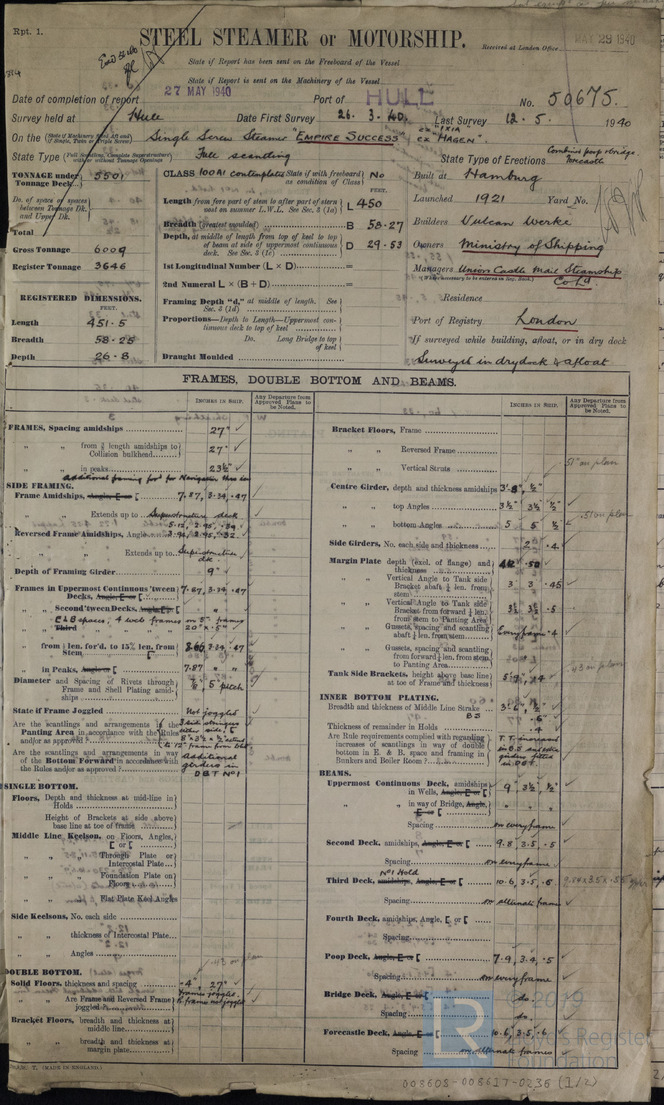 Rpt. 1.
STEEL STEAMER or MOTORSHIP.
Received at London Office MAY 29 1940
State if Report has been sent on the Freeboard of the Vessel
State if Report is sent on the Machinery of the Vessel
Date of completion of report 27 MAY 1940 Port of HULL No. 50675.
Survey held at Hull Date First Survey 26. 3. 40. Last Survey 12. 5. 1940
On the Single Screw Steamer "EMPIRE SUCCESS" ex "IXIA" ex "HAGEN"
State Type Full scantling State Type of Erections Combined poop & bridge, Forecastle
TONNAGE under Tonnage Deck 5501
Do. of space or spaces between Tonnage Dk. and Upper Dk.
Total
Gross Tonnage 6009
Register Tonnage 3646
REGISTERED DIMENSIONS.
FEET.
Length 451.5
Breadth 58.25
Depth 26.8
CLASS 100A1 contemplated State if with freeboard as condition of Class No
FEET.
Length from fore part of stem to after part of stern post on summer L.W.L. See Sec. 3 (1a) L 450
Breadth (greatest moulded) B 58.27
Depth, at middle of length from top of keel to top of beam at side of uppermost continuous deck. See Sec. 3 (1c) D 29.53
1st Longitudinal Number (L × D) =
2nd Numeral L × (B + D) =
Framing Depth "d," at middle of length. See Sec. 3 (1d)
Proportions—Depth to Length—Uppermost continuous deck to top of keel
Do. Long Bridge to top of keel
Draught Moulded
Built at Hamburg
Launched 1921 Yard No.
Builders Vulcan Werke
Owners Ministry of Shipping
Managers Union Castle Mail Steamship Co Ld
Residence
Port of Registry London
If surveyed while building, afloat, or in dry dock
Surveyed in drydock & afloat
FRAMES, DOUBLE BOTTOM AND BEAMS.
INCHES IN SHIP.
Any Departure from Approved Plans to be Noted.
FRAMES, Spacing amidships 27"
" " from ⅕ length amidships to Collision bulkhead 27"
" " in peaks 23½"
SIDE FRAMING.
Frame Amidships, Angle, E or [ 7.87, 3.34, .47
" " Extends up to Superstructure deck
Reversed Frame Amidships, Angle
" " Extends up to Superstructure dk
Depth of Framing Girder 9"
Frames in Uppermost Continuous 'tween Decks, Angle, E or [ 7.87, 3.34, .47
" " Second 'tween Decks, Angle, E or [ " " "
" " Third
" " from ⅕ len. for'd. to 15% len. from Stem
" " in Peaks, Angle or [ 7.87 " "
Diameter and Spacing of Rivets through Frame and Shell Plating amidships 5" pitch
State if Frame Joggled Not joggled
Are the scantlings and arrangements in the Panting Area in accordance with the Rules and/or as approved
Are the scantlings and arrangements in way of the Bottom Forward in accordance with the Rules and/or as approved Additional girders in DBT No 1
SINGLE BOTTOM.
Floors, Depth and thickness at mid-line in Holds
Height of Brackets at side above base line at toe of frame
Middle Line Keelson, on Floors, Angles, [ or [
" " Through Plate or Intercostal Plate
" " Foundation Plate on Floors
" " Flat Plate Keel Angles
Side Keelsons, No. each side
" " thickness of Intercostal Plate
" " Angles
DOUBLE BOTTOM.
Solid Floors, thickness and spacing .4 27"
" " Are Frame and Reversed Frame joggled Frame joggled R. frame not joggled
Bracket Floors, breadth and thickness at middle line
" " breadth and thickness at margin plate
Bracket Floors, Frame
" " Reversed Frame
" " Vertical Struts
Centre Girder, depth and thickness amidships 3'.8", ½"
" " top Angles 3½" 3½" ½"
" " bottom Angles 5 5 ½
Side Girders, No. each side and thickness 2 .4
Margin Plate depth (excl. of flange) and thickness .50
" " Vertical Angle to Tank side Bracket abaft ¼ len. from stem 3 3 .45
" " Vertical Angle to Tank side Bracket from forward ¼ len. from stem to Panting Area 3½ 3½ .5
" " Gussets, spacing and scantling abaft ¼ len. from stem Every frame .4
" " Gussets, spacing and scantling from forward ¼ len. from stem to Panting Area
Tank Side Brackets, height above base line at toe of Frame and thickness
INNER BOTTOM PLATING.
Breadth and thickness of Middle Line Strake
Thickness of remainder in Holds
Are Rule requirements complied with regarding increases of scantlings in way of double bottom in E. & B. space and framing in Bunkers and Boiler Room ?
BEAMS.
Uppermost Continuous Deck, amidships in Wells, Angle, E or [ 9, 3½, ½"
" " in way of Bridge, Angle, E or [ " " "
Spacing on every frame
Second Deck, amidships, Angle, E or [ 9.8, 3.5, .5
Spacing on every frame
No 1 Hold
Third Deck, amidships, Angle, E or [ 10.6, 3.5, .5
Spacing on alternate frames
Fourth Deck, amidships, Angle, [ or [
Spacing
Poop Deck, Angle, E or [ 7.9, 3.4, .5
Spacing on every frame
Bridge Deck, Angle, E or [ do.
Spacing do.
Forecastle Deck, Angle, E or [ 10.6, 3.5, .6
Spacing on alternate frames
© 2019
Lloyd's Register
Foundation
LR
008608-008617-0236 (1/2)